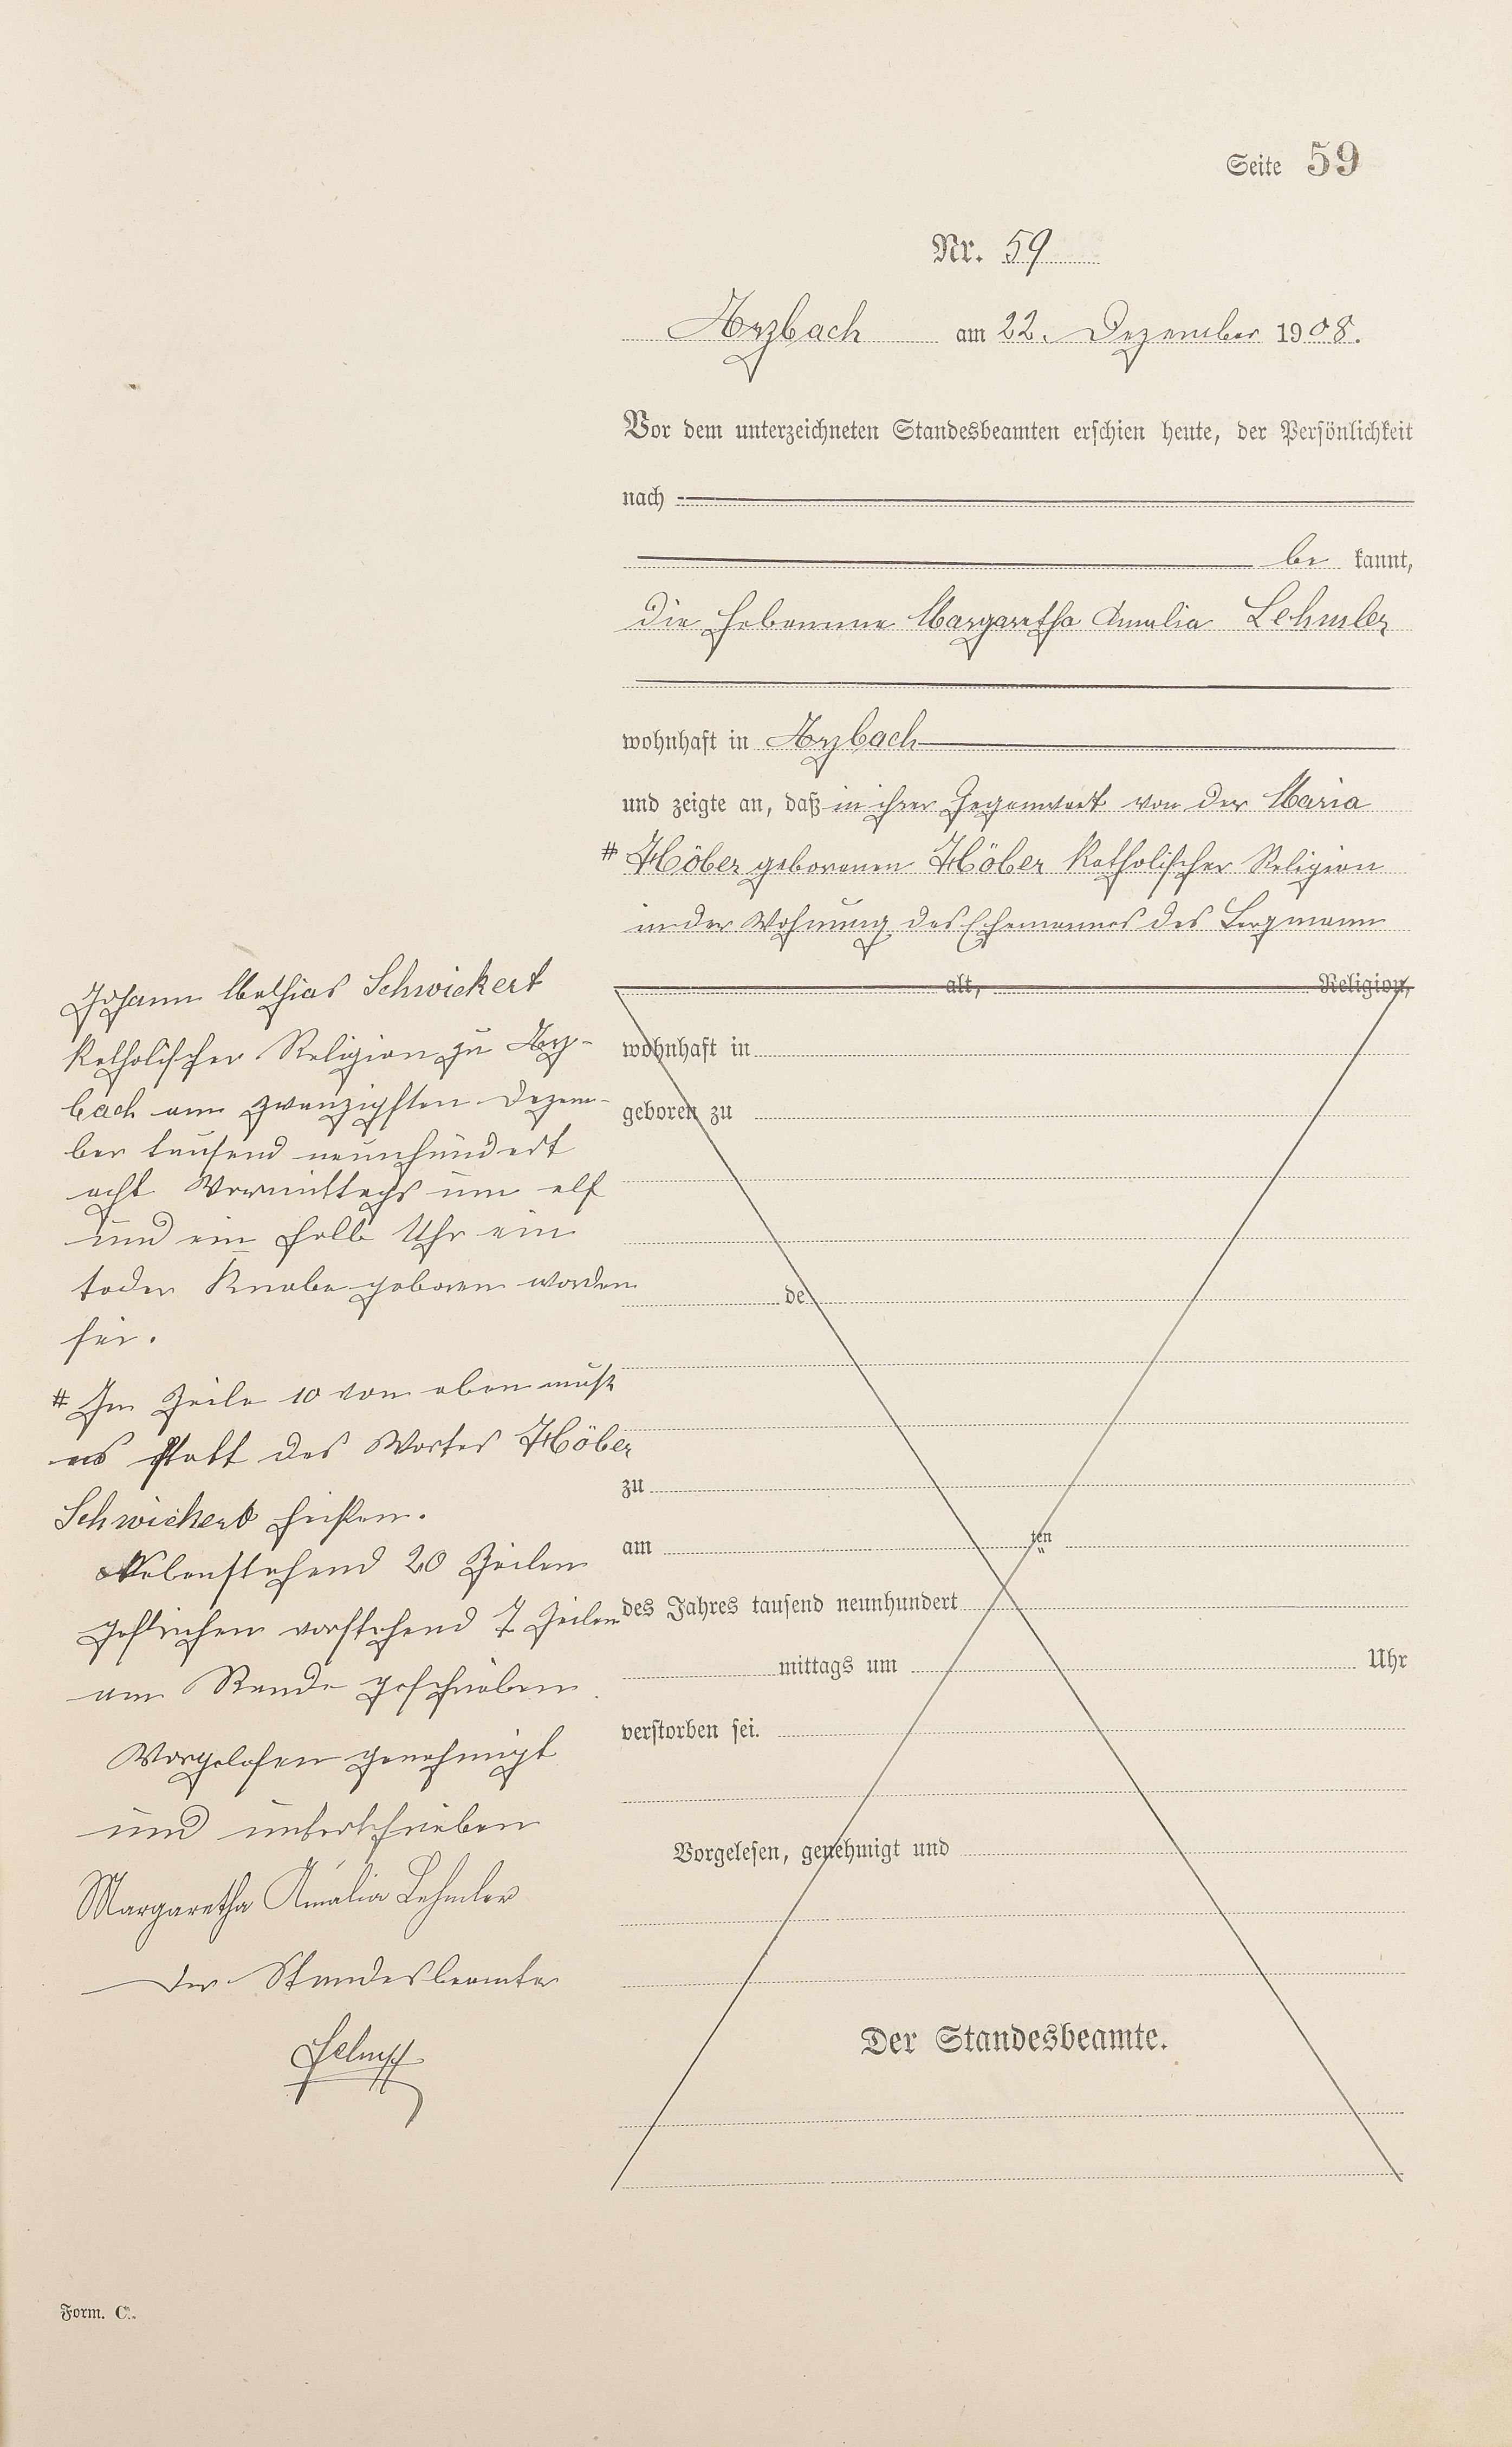 Seite 59
Nr. 59
Arzbach am 22. Dezember 1908.
Vor dem unterzeichneten Standesbeamten erschien heute, der Persönlichkeit
nach
be kannt,
die Hebamme Margaretha Amalia Lehmler
wohnhaft in Arzbach
und zeigte an, daß in ihrer Gegenwart von der Maria
# Höber geborenen Höber katholischer Religion
in der Wohnung des Ehemannes des Bergmann
alt, Religion,
wohnhaft in
geboren zu
de
zu
am ten
des Jahres tausend neunhundert
mittags um Uhr
verstorben sei.
Vorgelesen, genehmigt und
Der Standesbeamte.
Johann Mathias Schwickert
katholischer Religion zu Arz-
bach am zwanzigsten Dezem-
ber tausend neunhundert
acht Vormittags um elf
und ein halb Uhr ein
toder Knabe geboren worden
sei.
# In Zeile 10 von oben muß
es statt des Wortes Höber
Schwickert heißen.
Nebenstehend 20 Zeilen
gestrichen vorstehend 7 Zeilen
am Rande geschrieben
Vorgelesen genehmigt
und unterschrieben
Margaretha Amalia Lehmler
Der Standesbeamte
Form. C.